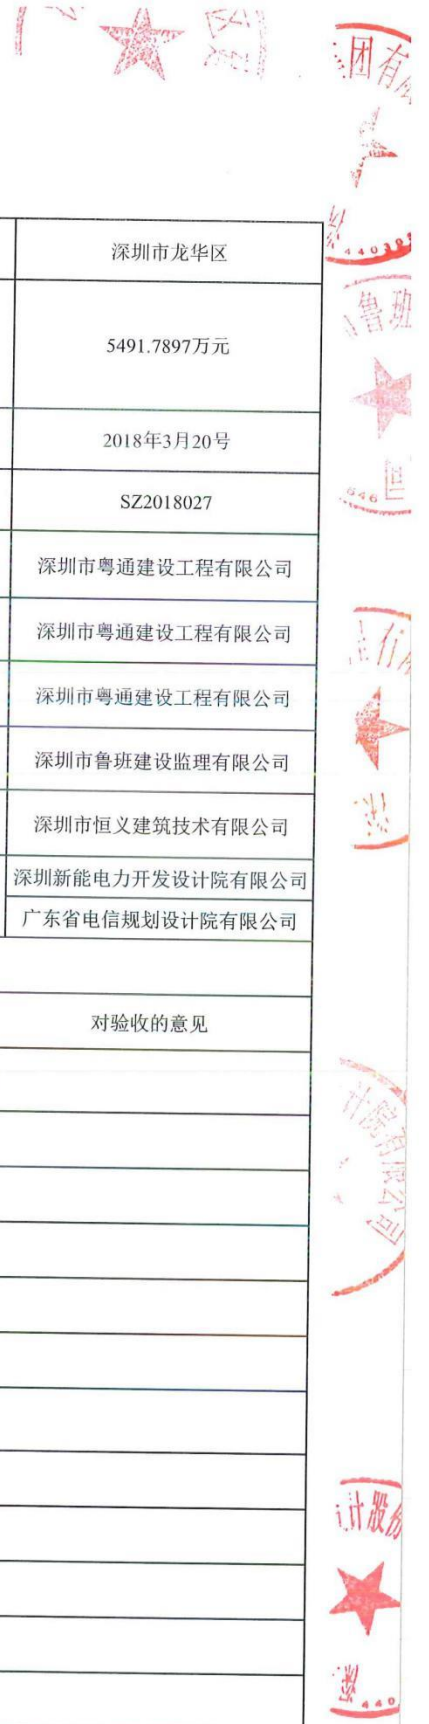 团有
44030
深圳市龙华区
鲁班
5491.7897万元
2018年3月20号
司
646
SZ2018027
深圳市粤通建设工程有限公司
深圳市粤通建设工程有限公司
深圳市粤通建设工程有限公司
深圳市鲁班建设监理有限公司
深圳市恒义建筑技术有限公司
深圳新能电力开发设计院有限公司
广东省电信规划设计院有限公司
对验收的意见
计院有限公司
计股份
深
440